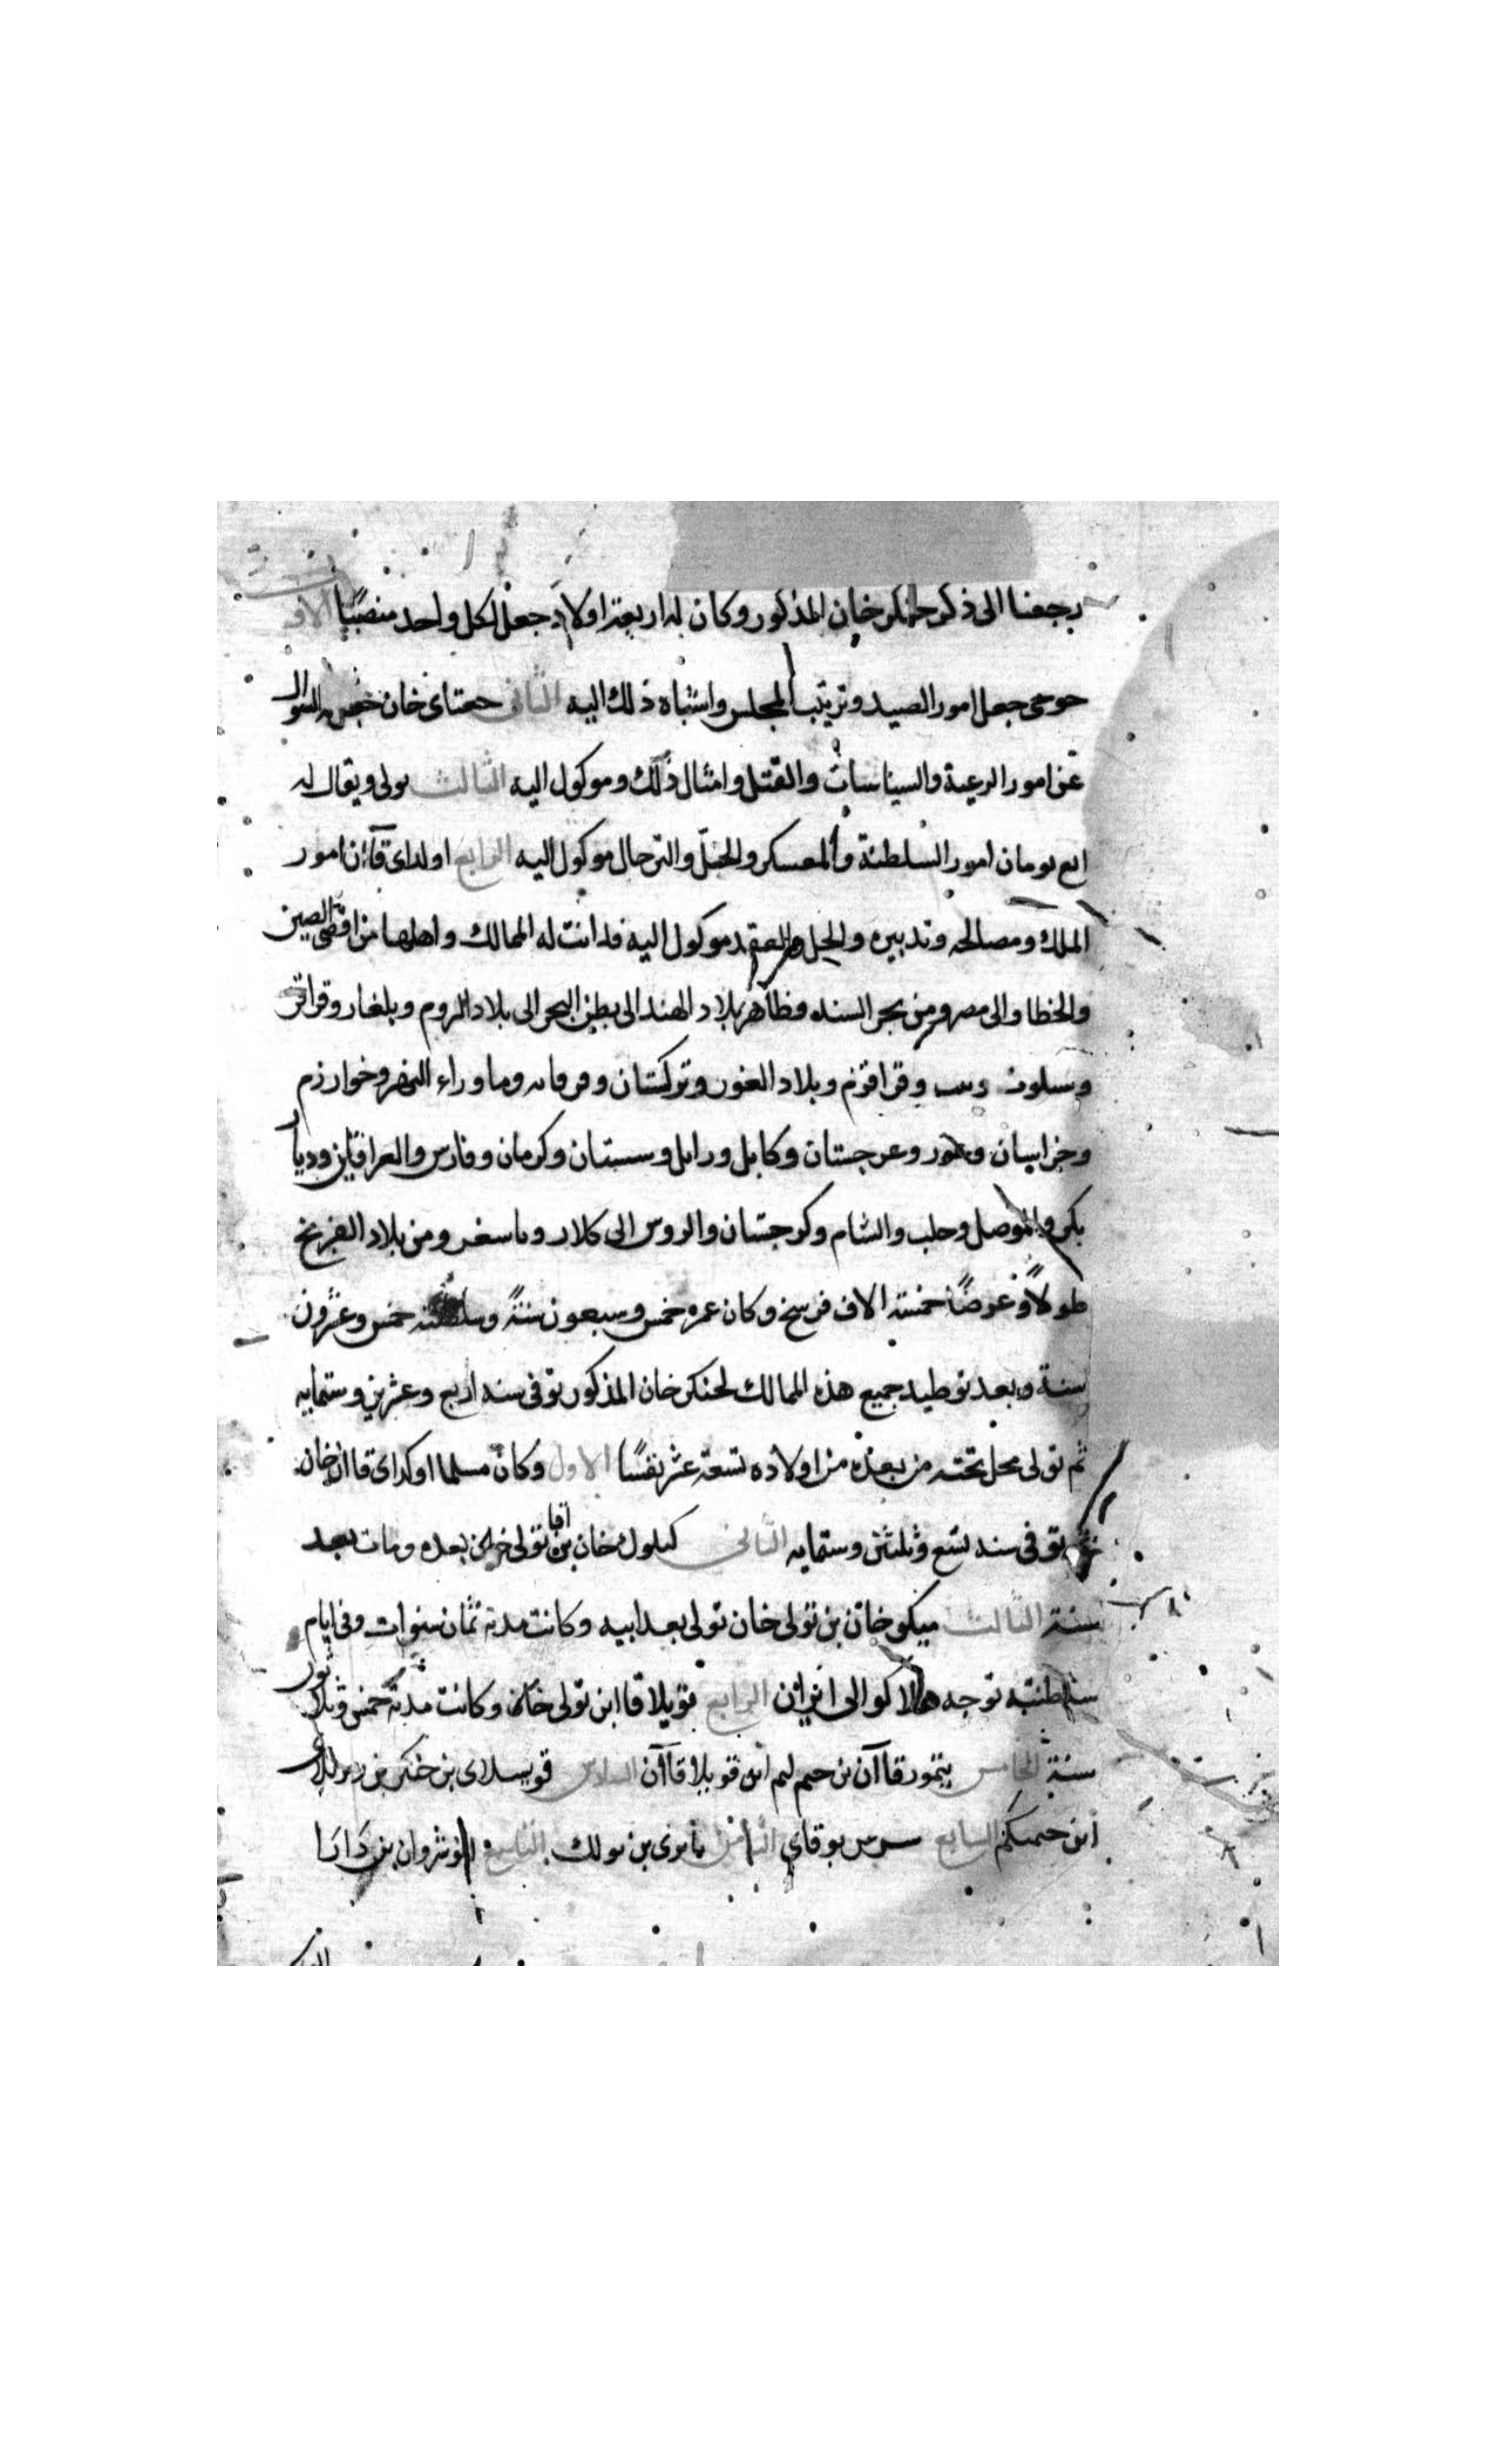 رجعنا الى ذكر جنكز خان المذكور وكان له اربعة اولاد جعل لكل واحد منصبًا الاول
جوجي جعل امور الصيد وترتيب المجلس واشباه ذلك اليه الثاني جغتاى خان
عن امور الرعية والسياسات والقتل وامثال ذلك وموكول اليه الثالث تولى ويقال له
امور السلطنة والمعسكر والترحال موكول اليه الرابع اولداى قاآن امور
الملك ومصالحه وتدبيره والحل والعقد موكول اليه فدانت له الممالك واهلها من اقصى الصين
والخطا والى مصر ومن بحر السند وظاهر بلاد الهند الى بطن البحر الى بلاد الروم وبلغار
وقراقرم وبلاد الغور وتركستان وما وراء النهر وخوارزم
وخراسان وغور وغرجستان وكابل وزابل وسستان وكرمان وفارس والعراقين وديار
بكر والموصل وحلب والشام وكرجستان والروس الى كلار ومن بلاد الفرنج
طولاً وعرضًا خمسة الاف فرسخ وكان عمره خمس وسبعون سنةً وسلطنته خمس وعشرون
سنة وبعد توطيد جميع هذه الممالك لجنكز خان المذكور توفى سنة اربع وعشرين وستمايه
ثم تولى محل تخته من بعده من اولاده تسعة عشر نفسًا الاول وكان مسلما اوكداى قاان خان
ثم توفى سنة تسع وثلثين وستمايه الثانى كيلوك خان بن تولى خان بعده ومات بعد
سنة الثالث ميكو خان بن تولى خان تولى بعد ابيه وكانت مدته ثمان سنوات وفى ايام
سلطنته توجه هلاكو الى ايران الرابع قوبلا قاا ابن تولى خان وكانت مدته خمس وثلاثون
سنة الخامس يتمور قاآن بن ابن قوبلا قاآن السادس قويسلاى بن
ابن السابع بوقاي الثامن بن التاسع انوشروان بن دارا